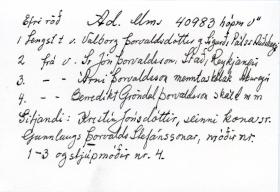 Efri röð Ad. Mms 40983 hópm v"
1 lengst t v. Valborg Þorvaldsdóttir g Sigurði Pálss
2 frá v. Sr. Jón Þorvaldsson, Stað, Reykjanesi
3. — — Árni Þorvaldsson menntask
4. — — Benedikt Gröndal Þorvaldsson skáld m m
Sitjandi: Kristín Jónsdóttir, seinni kona sr.
Gunnlaugs Þorvalds Stefánssonar, móðir nr.
1-3 og stjúpmóðir nr. 4.